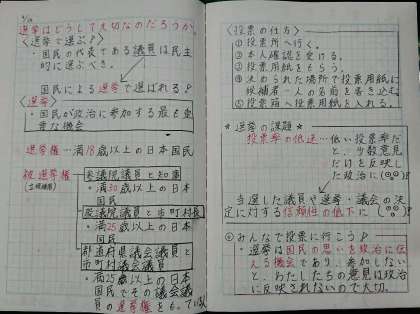 選挙はどうして大切なのだろうか。
〈選挙で選ぶ?〉
・国民の代表である議員は民主
的に選ぶべき。
国民による選挙で選ばれる!
〈選挙〉
・国民が政治に参加する最も重
要な機会
選挙権…満18歳以上の日本国民
被選挙権
(立候補権)
参議院議員と知事
・満30歳以上の日本
国民
衆議院議員と市町村長
・満25歳以上の日本
国民
都道府県議会議員と
市町村議会議員
・満25歳以上の日本
国民でその議会議
員の選挙権をもっている
〈投票の仕方〉
①投票所へ行く。
②本人確認を受ける。
③投票用紙をもらう。
④決められた場所で投票用紙に
候補者一人の名前を書き込む。
⑤投票箱へ投票用紙を入れる。
*選挙の課題*
投票率の低迷…低い投票率だ
と、少数意見
だけを反映し
た政治に
当選した議員や選挙・議会の決
定に対する信頼性の低下に
◎みんなで投票に行こう!
・選挙は国民の思いを政治に伝
える機会であり、参加しない
と、わたしたちの意見は政治
に反映されないので大切。